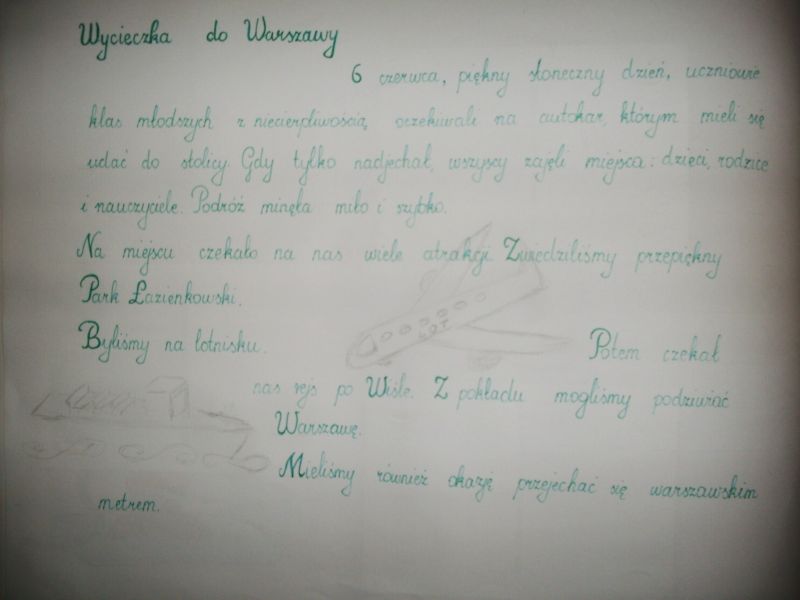 Wycieczka do Warszawy
6 czerwca, piękny słoneczny dzień, uczniowie
klas młodszych z niecierpliwością oczekiwali na autokar, którym mieli się
udać do stolicy. Gdy tylko nadjechał, wszyscy zajęli miejsca: dzieci, rodzice
i nauczyciele. Podróż minęła miło i szybko.
Na miejscu czekało na nas wiele atrakcji. Zwiedziliśmy przepiękny
Park Łazienkowski.
LOT
Byliśmy na lotnisku. Potem czekał
nas rejs po Wiśle. Z pokładu mogliśmy podziwiać
Warszawę.
Mieliśmy również okazję przejechać się warszawskim
metrem.